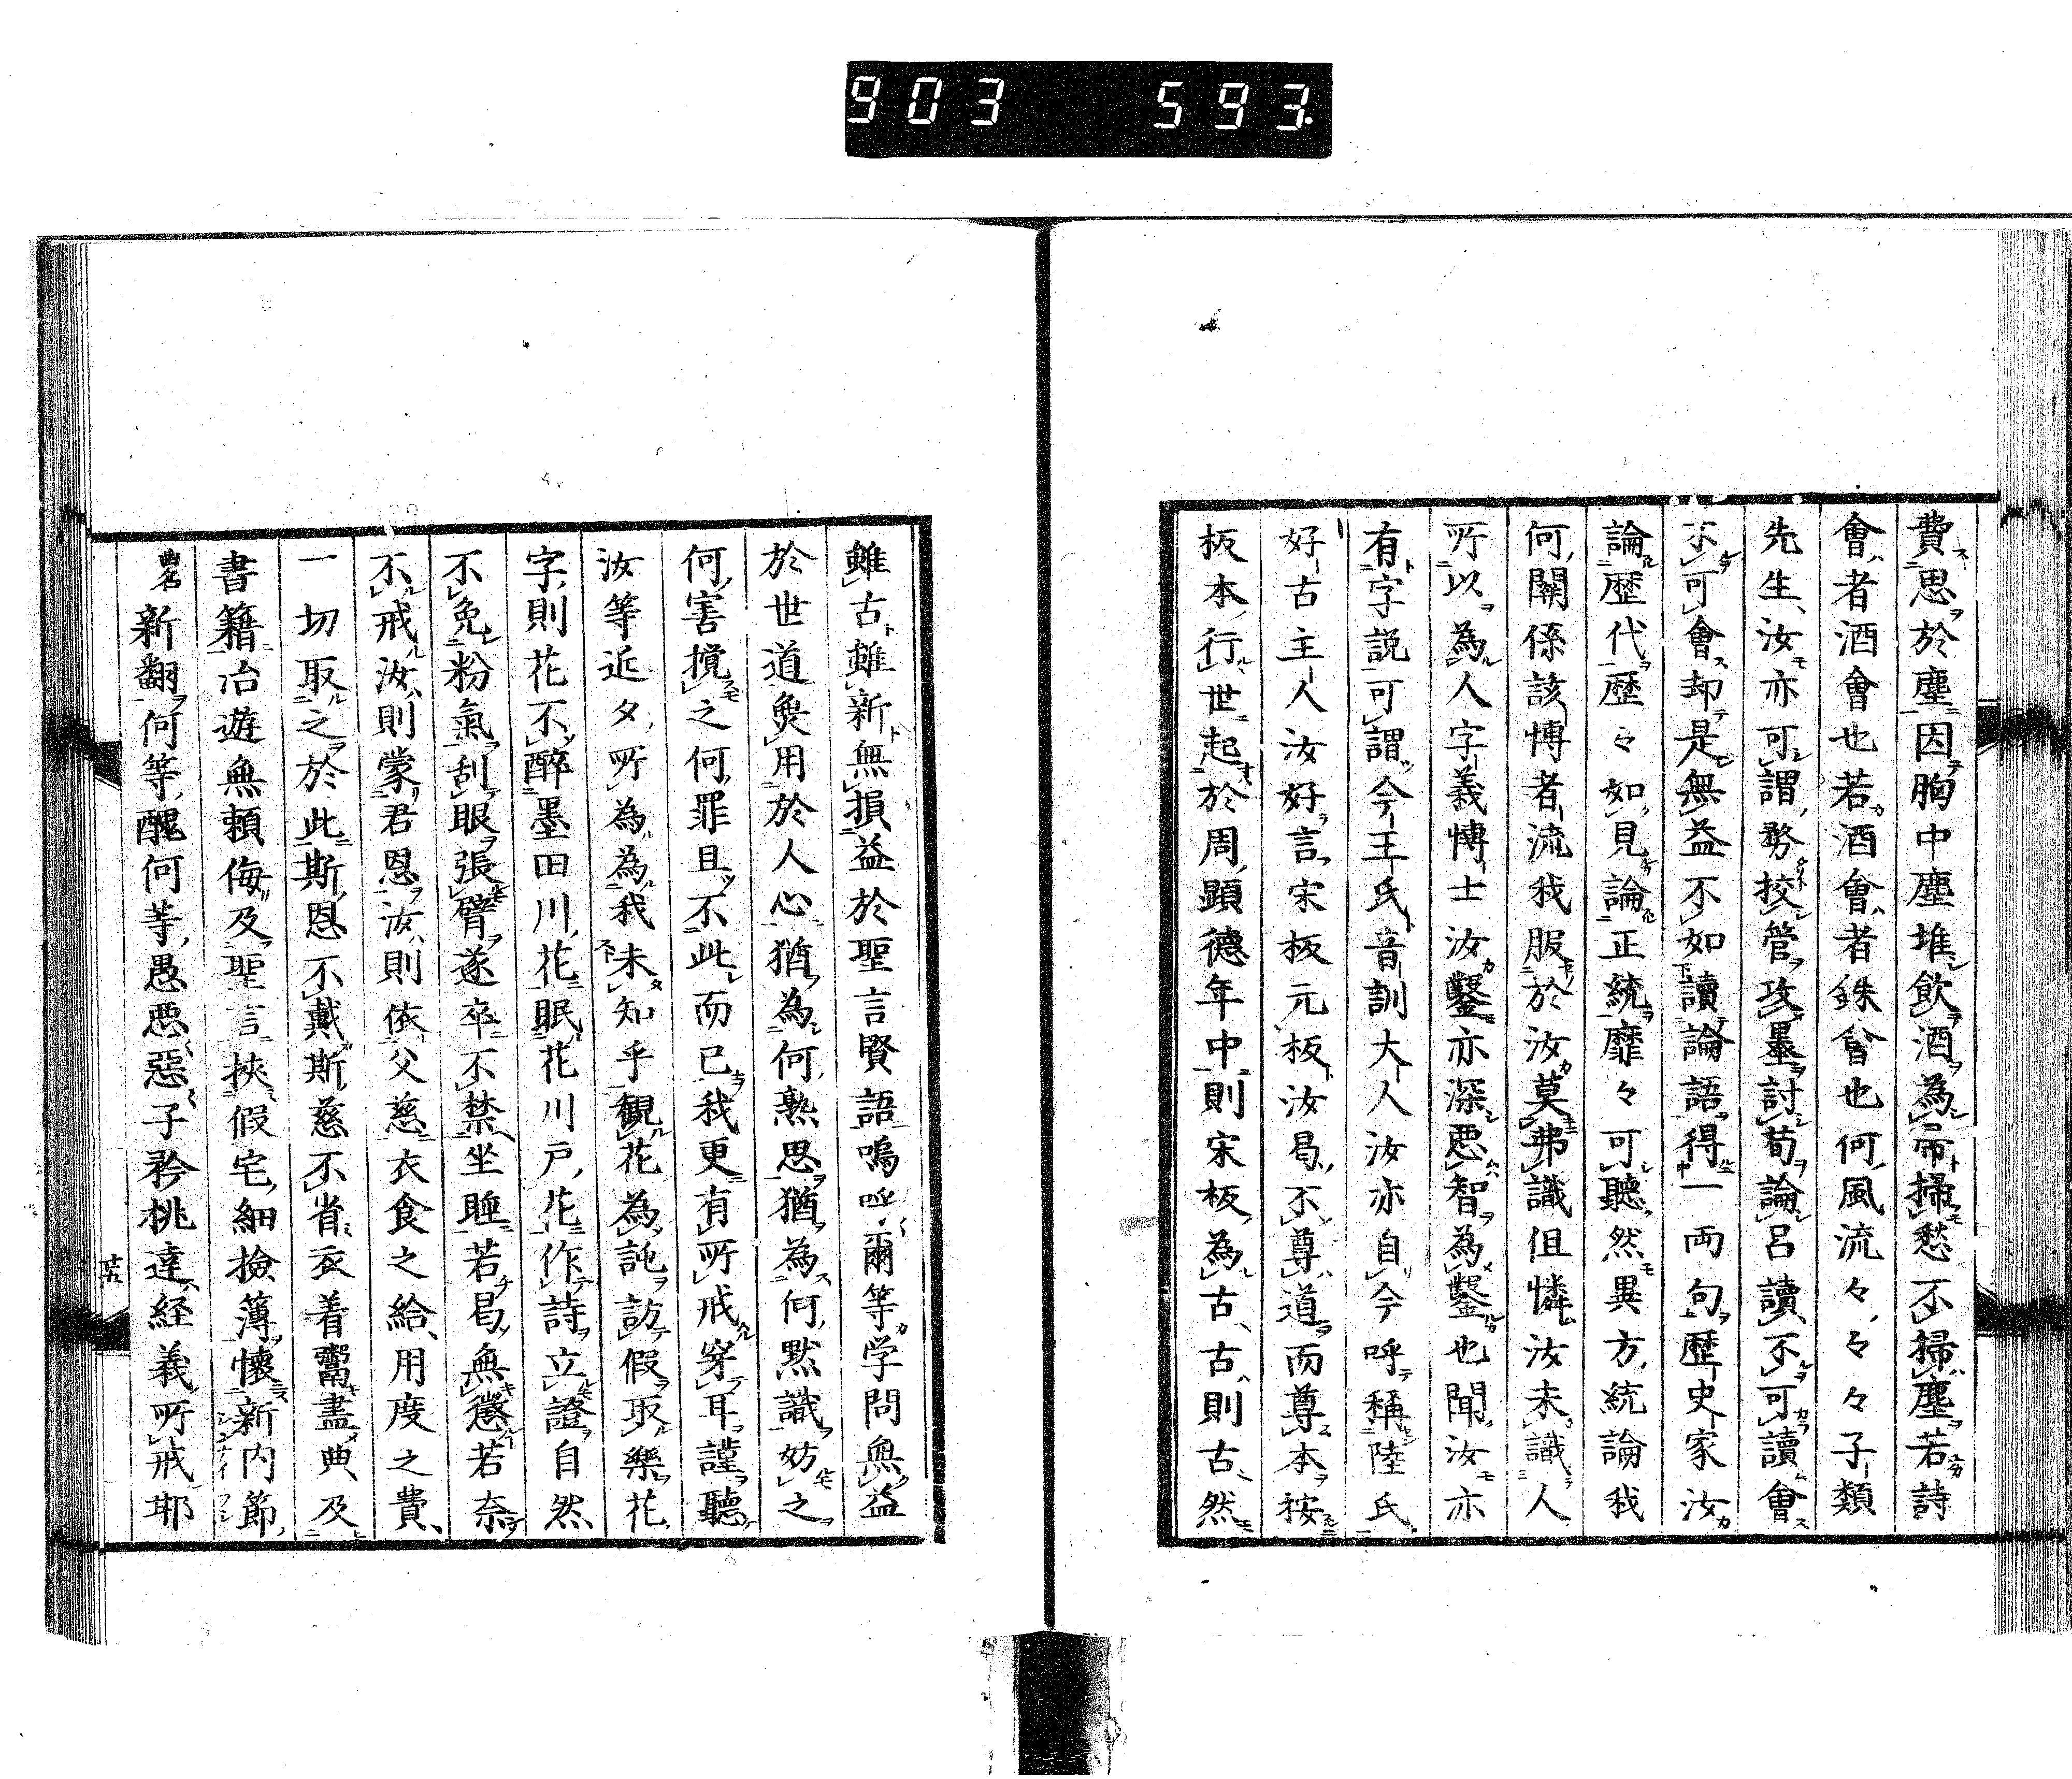 903 593.
費思於塵因胸中塵堆飲酒為帚掃愁不掃塵若詩
會者酒會也若酒會者銖會也何風流々々々子類
先生汝亦可謂務挍管攻墨討荀論呂讀不可讀會
不可會却是無益不如讀論語得一両句歴史家汝
論歴代歴々如見論正統靡々可聽然異方統論我
何關係該博者流我服於汝莫弗識但憐汝未識人
所以為人字義博士汝鑿亦深悪智為鑿也聞汝亦
有字説可謂今王氏音訓大人汝亦自今呼稱陸氏
好古主人汝好言宋板元板汝曷不尊道而尊本桉
板本行世起於周顕德年中則宋板為古古則古然
雖古雖新無損益於聖言賢語嗚呼爾等学問無益
於世道無用於人心猶為何熟思猶為何默識妨之
何害攪之何罪且不此而已我更有所戒穿耳謹聽
汝等近夕所為為我未知乎觀花為託訪假取樂花
字則花不醉墨田川花眠花川戸花作詩立證自然
不免粉氣刮眼張臂遂卒不禁坐睡若曷無懲若奈
不戒汝則蒙君恩汝則依父慈衣食之給用度之費
一切取之於此斯恩不戴斯慈不省衣着鬻盡典及
書籍冶遊無頼侮及聖言挾假宅細撿薄懷新内節
新翻何等醜何等愚悪惡子矜桃達経義所戒耶
十五